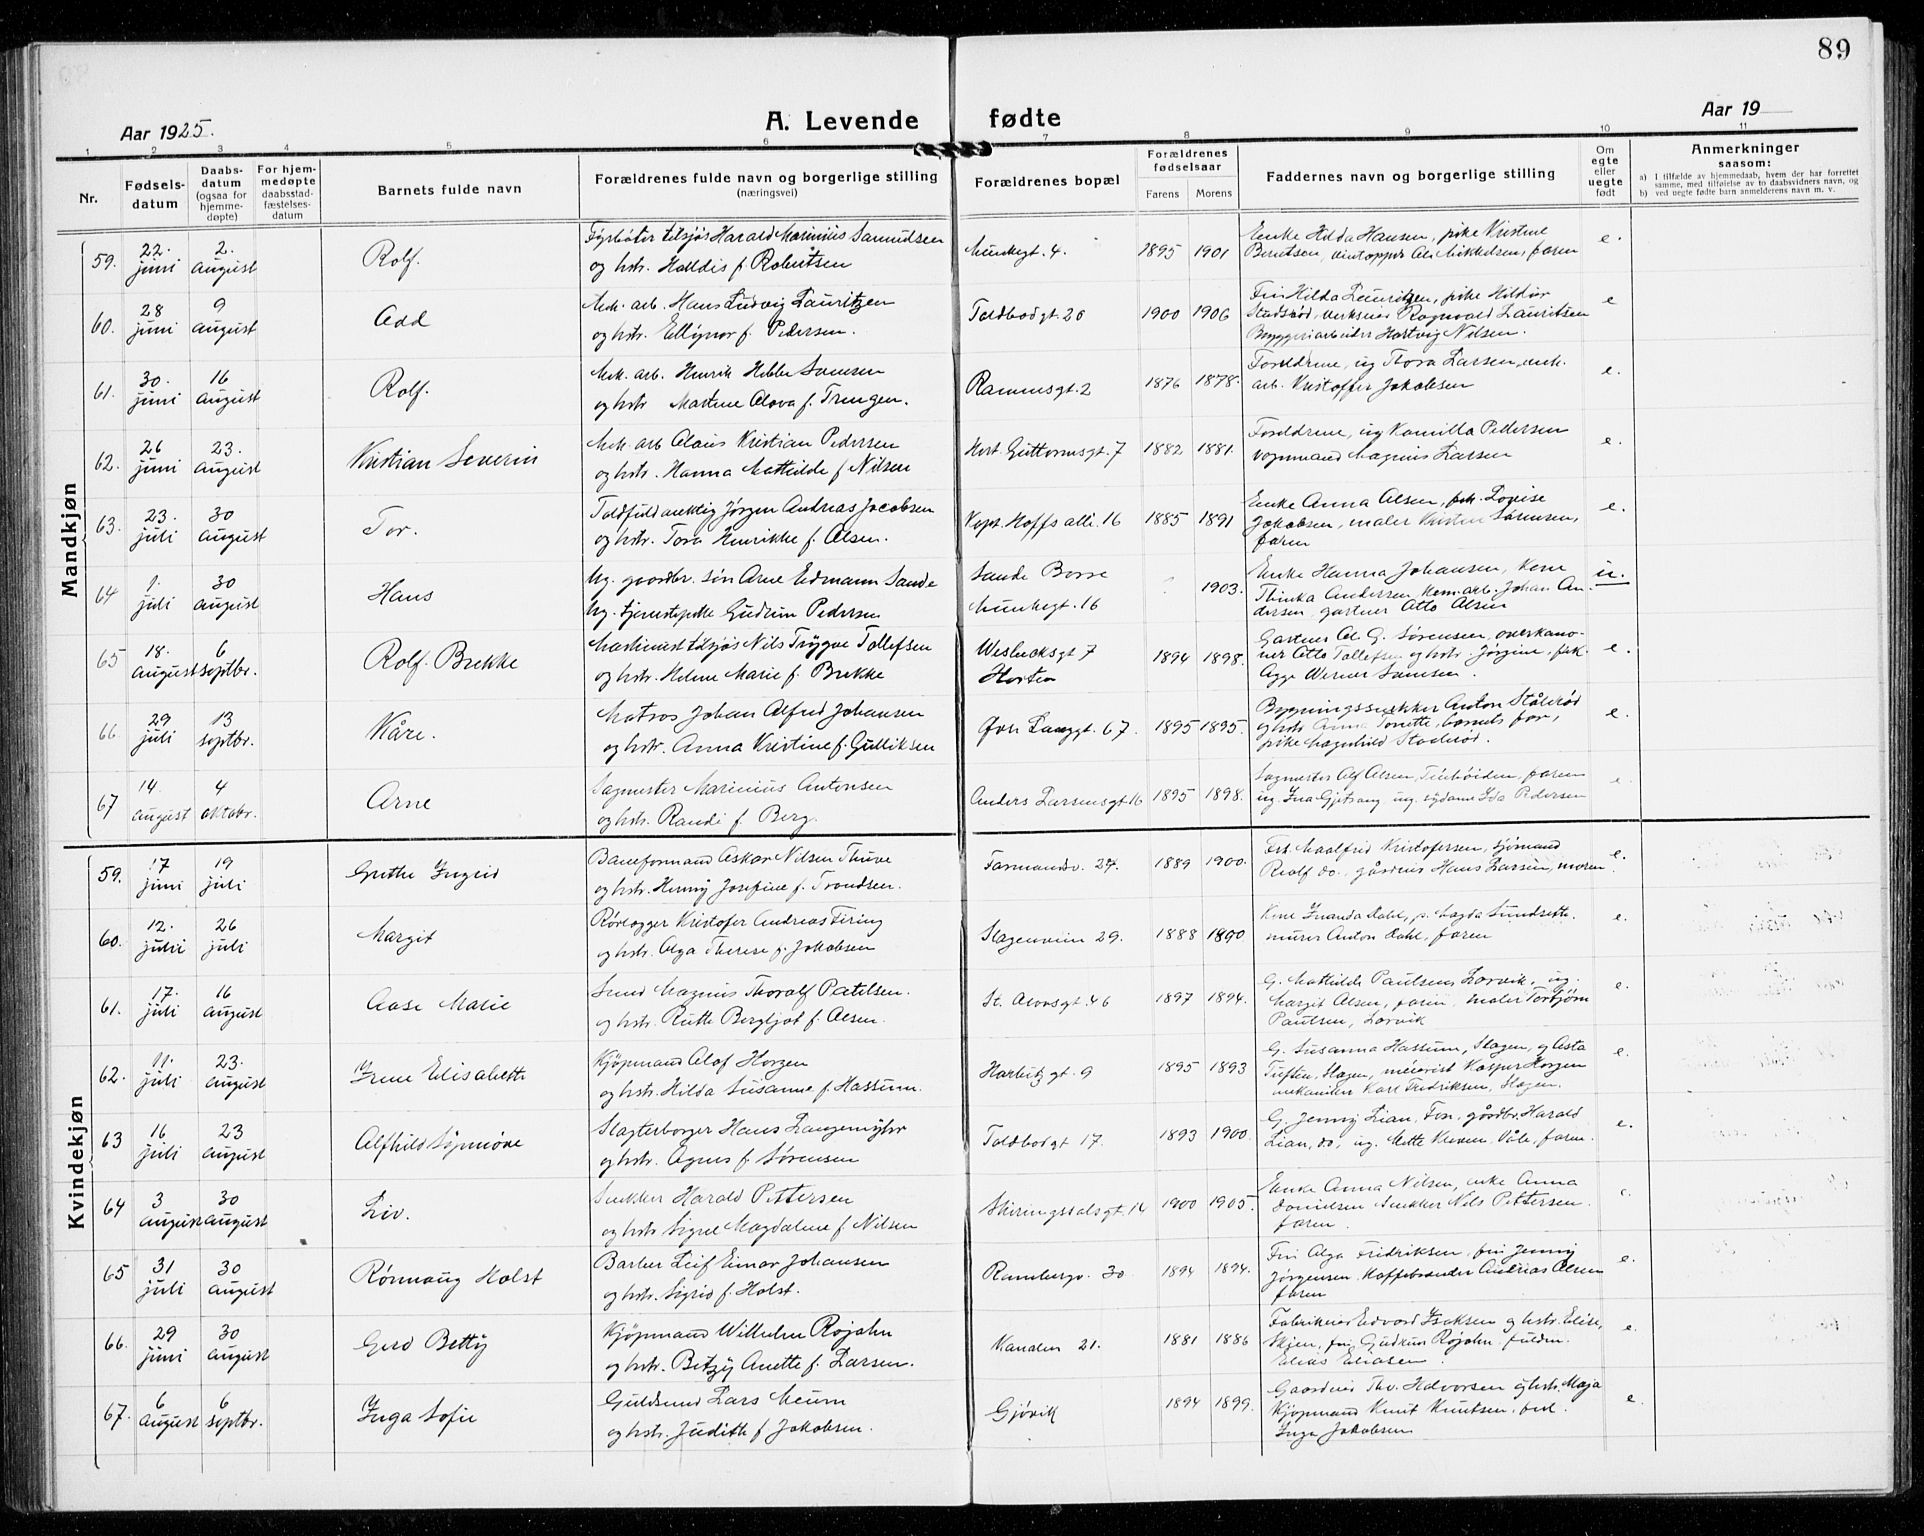 89
Aar 1925.
A. Levende fødte
Aar 19
1 2 3 4 5 6 7 8 9 10 11
Nr.
Fødsels-
datum
Daabs-
datum
(ogsaa for
hjemme-
døpte)
For hjem-
medøpte
daabsstad-
fæstelses-
datum
Barnets fulde navn
Forældrenes fulde navn og borgerlige stilling
(næringsvei)
Forældrenes bopæl
Forældrenes
fødselsaar
Farens Morens
Faddernes navn og borgerlige stilling
Om
egte
eller
uegte
født
Anmerkninger
saasom:
a) I tilfælde av hjemmedaab, hvem der har forrettet
samme, med tilføielse av to daabsvidners navn, og
b) ved uegte fødte barn anmelderens navn m. v.
Mandkjøn
59. 22. juni 2. august Rolf.
Fyrbøter tilsjøs Harald Marinius Samuelsen
og hstr. Halldis f. Robertsen
Munkegt. 4. 1895 1901
Enke Hilda Hansen, pike Kristine
Berntsen, Mikkelsen, faren
e.
60. 28 juni 9 august Odd
Mek. arb. Hans Ludvig Lauritzen
og hstr. Ellynor f. Pedersen.
Toldbodgt 26 1900 1906
Fru Hilda Lauritzen, pike Hildur
Ragnvald Lauritsen
Bryggeriarbeider Hartvig Nilsen.
e
61. 30. juni 16 august Rolf.
Mek. arb. Henrik Hilbe Samsen
og hstr Martine Olava f. Trengen.
Rammsgt. 2 1876 1878.
Foreldrene, ug Thora Larsen, mek.
arb. Kristoffer Jakobsen
e.
62. 26 juni 23. august Kristian Severin
Mek. arb Olaus Kristian Pedersen
og hstr. Hanna Mathilde f Nilsen
Hert. Guttormsgt. 7 1882 1881.
Foreldrene, ug Kamilla Pedersen
vognmand Magnus Larsen
e.
63. 23. juli 30 august Tor.
Toldfuldmektig Jørgen Andreas Jacobsen
og hstr. Tora Henrikke f. Olsen.
Kapt. Hoffs alle. 16 1885 1891
Enke Anna Olsen, frk. Lovise
Jakobsen, maler Kristen Sørensen,
faren
e.
64 1. juli 30 august Hans
Ug. gaardbr. søn Arne Edmann Sande
Ug. tjenestepike Gudrun Pedersen
Sande Borre
Munkegt. 16 1903.
Enke Hanna Johansen, Kone
Thinka Andersen, Kom.arb. Johan An-
dersen, gartner Otto Olsen
u.
65 18. august 6 septbr. Rolf. Brekke
Maskinist tilsjøs Nils Trygve Tollefsen
og hstr. Helene Marie f. Brekke
7
Horten 1894 1898.
Gartner Ol. G. Sørensen, overkano-
ner Otto Tollefsen og hstr. Jørgine, frk.
Agge Werner Samsen.
e.
66 29 juli 13 septbr. Kåre.
Matros Johan Alfred Johansen
og hstr. Anna Kristine f. Gulliksen
Øvre Langgt. 67. 1895 1895.
Bygningssnekker Anton
og hstr Anna Tonette, barnets far,
pike Magnhild
e.
67 14. august 4 oktobr. Arne
Sagmester Marinius Antonsen
og hstr. Randi f. Berg.
Anders Larsensgt. 16 1895 1898.
Sagmester Alf Olsen, faren
ug. Ina ug. sydame Ida Pedersen
e.
Kvindekjøn
59. 17 juni 19 juli Grethe Ingrid
Baneformand Oskar Nilsen Thuve
og hstr. Henny Josefine f. Trondsen.
Farmandsv. 24. 1889 1900.
Frk. Maalfrid Kristofersen, sjømand
Reolf do., gårdeier Hans Larsen, moren
e.
60. 12. juli 26 juli Margit
Rørlegger Kristofer Andreas Firing
og hstr. Olga Therese f. Jakobsen
Slagenveien 29. 1888 1890
Kone Inanda Dahl, p. Magda Sundseth,
murer Anton Dahl, faren
e.
61. 17. juli 16 august Aase Marie
Smed Magnus Thoralf Paulsen.
og hstr. Ruth Bergljot f. Olsen.
St. Olavsgt. 46 1897 1894.
G. Mathilde Paulsen Larvik, ug.
Margit Olsen, faren, maler Torbjørn
Paulsen, Larvik
e.
62. 11. juli 23. august Irene Elisabeth
Kjøpmand Olaf Horgen
og hstr. Hilda Susanne f. Hassum.
gt 9 1895 1893
G. Susanna Hassum, Slagen, g Asta
Tuften, Slagen, meierist Kasper Horgen
mekaniker Karl Fredriksen, Slagen.
e.
63 16 juli 23 august Alfhild Synnøve
Slagterborger Hans Langemyhr
og hstr. Agnes f. Sørensen
Toldbodgt 17. 1893 1900.
G. Jenny Lian, Fon, gårdbr. Harald
Lian, do, ug. Mette Kverne, Våle, faren.
e.
64 3 august 30 august Liv.
Snekker Harald Pettersen
og hstr. Signe Magdalene f Nilsen
Skiringssalsgt. 14 1900 1905.
Enke Anna Nilsen, enke Anna
Danielsen Snekker Nils Pettersen.
faren.
e.
65 31 juli 30 august Rønnaug Holst
Barber Leif Einar Johansen
og hstr. Sigrid f. Holst.
Rambergv. 30 1894 1894.
Fru Olga Fridriksen, fru Jenny
Jørgensen, Kaffebrander Andreas Olsen
faren
e.
66. 29 juni 30 august Gerd Betty
Kjøpmand Wilhelm Rojahn
og hstr. Betzy Anette f. Larsen.
Kanalen 21. 1881 1886
Fabrikeier Edvard Isaksen og hstr. Elise,
Skien, fru Gudrun Rojahn,
Elias Eliasen.
e.
67. 6 august 6 septbr. Inga Sofie
Guldsmed Lars Meum
og hstr. Judith f Jakobsen.
Gjøvik 1894 1899.
Gaardeier Thv. Halvorsen og hstr. Maja
Kjøpmand Knut Knutsen,
Inga Jakobsen
e.